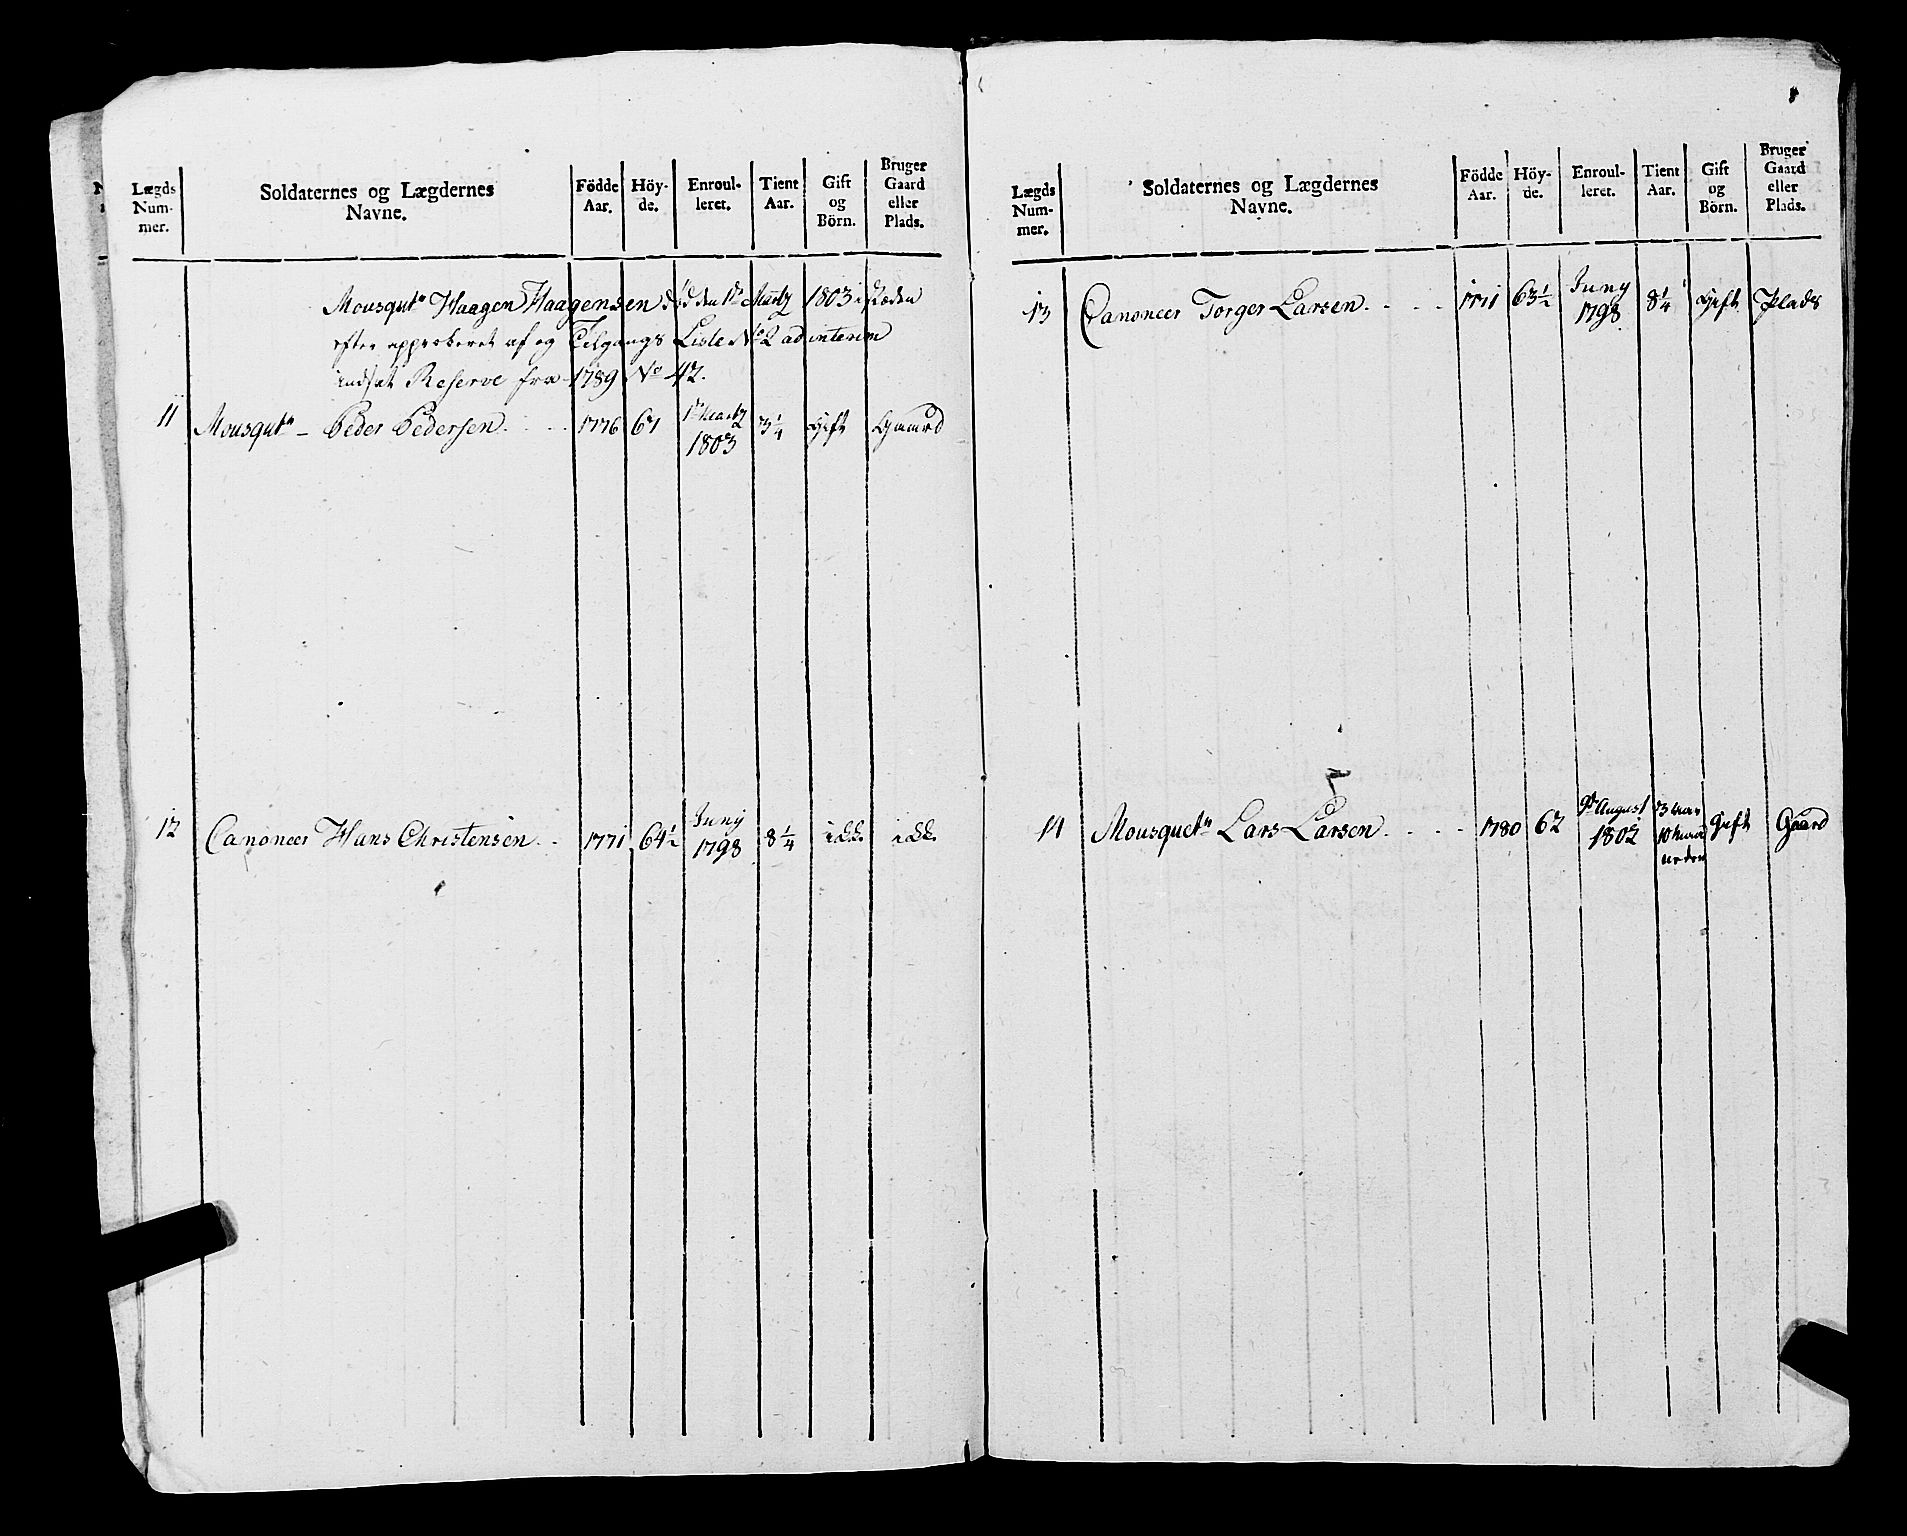 Lægds Num- mer.
Soldaternes og Lægdernes Navne.
Födde Aar.
Höy- de.
Enroul- leret.
Tient Aar.
Gift og Börn.
Bruger Gaard eller Plads.
Mousqutr Haagen Haagensen død den 1ste Martz 1803 i stæden
efter approberet af og Tilgangs Liste No 2 ad interim
indsat Reserve fra 1789 No 42.
11 Mousqutr – Peder Pedersen. 1776 67 1ste Martz 1803 3 1/4 Gift Gaard
12 Canoneer Hans Christensen 1771 64 1/2 Juny 1798 8 1/4 ikke ikke
Lægds Num- mer.
Soldaternes og Lægdernes Navne.
Födde Aar.
Höy- de.
Enroul- leret.
Tient Aar.
Gift og Börn.
Bruger Gaard eller Plads.
13 Canoneer Torger Larsen. 1771 63 1/2 Juny 1798 8 1/4 Gift Plads
14 Mousquetr Lars Larsen. 1780 62 9de August 1802 3 aar 10 maa neder Gift Gaard